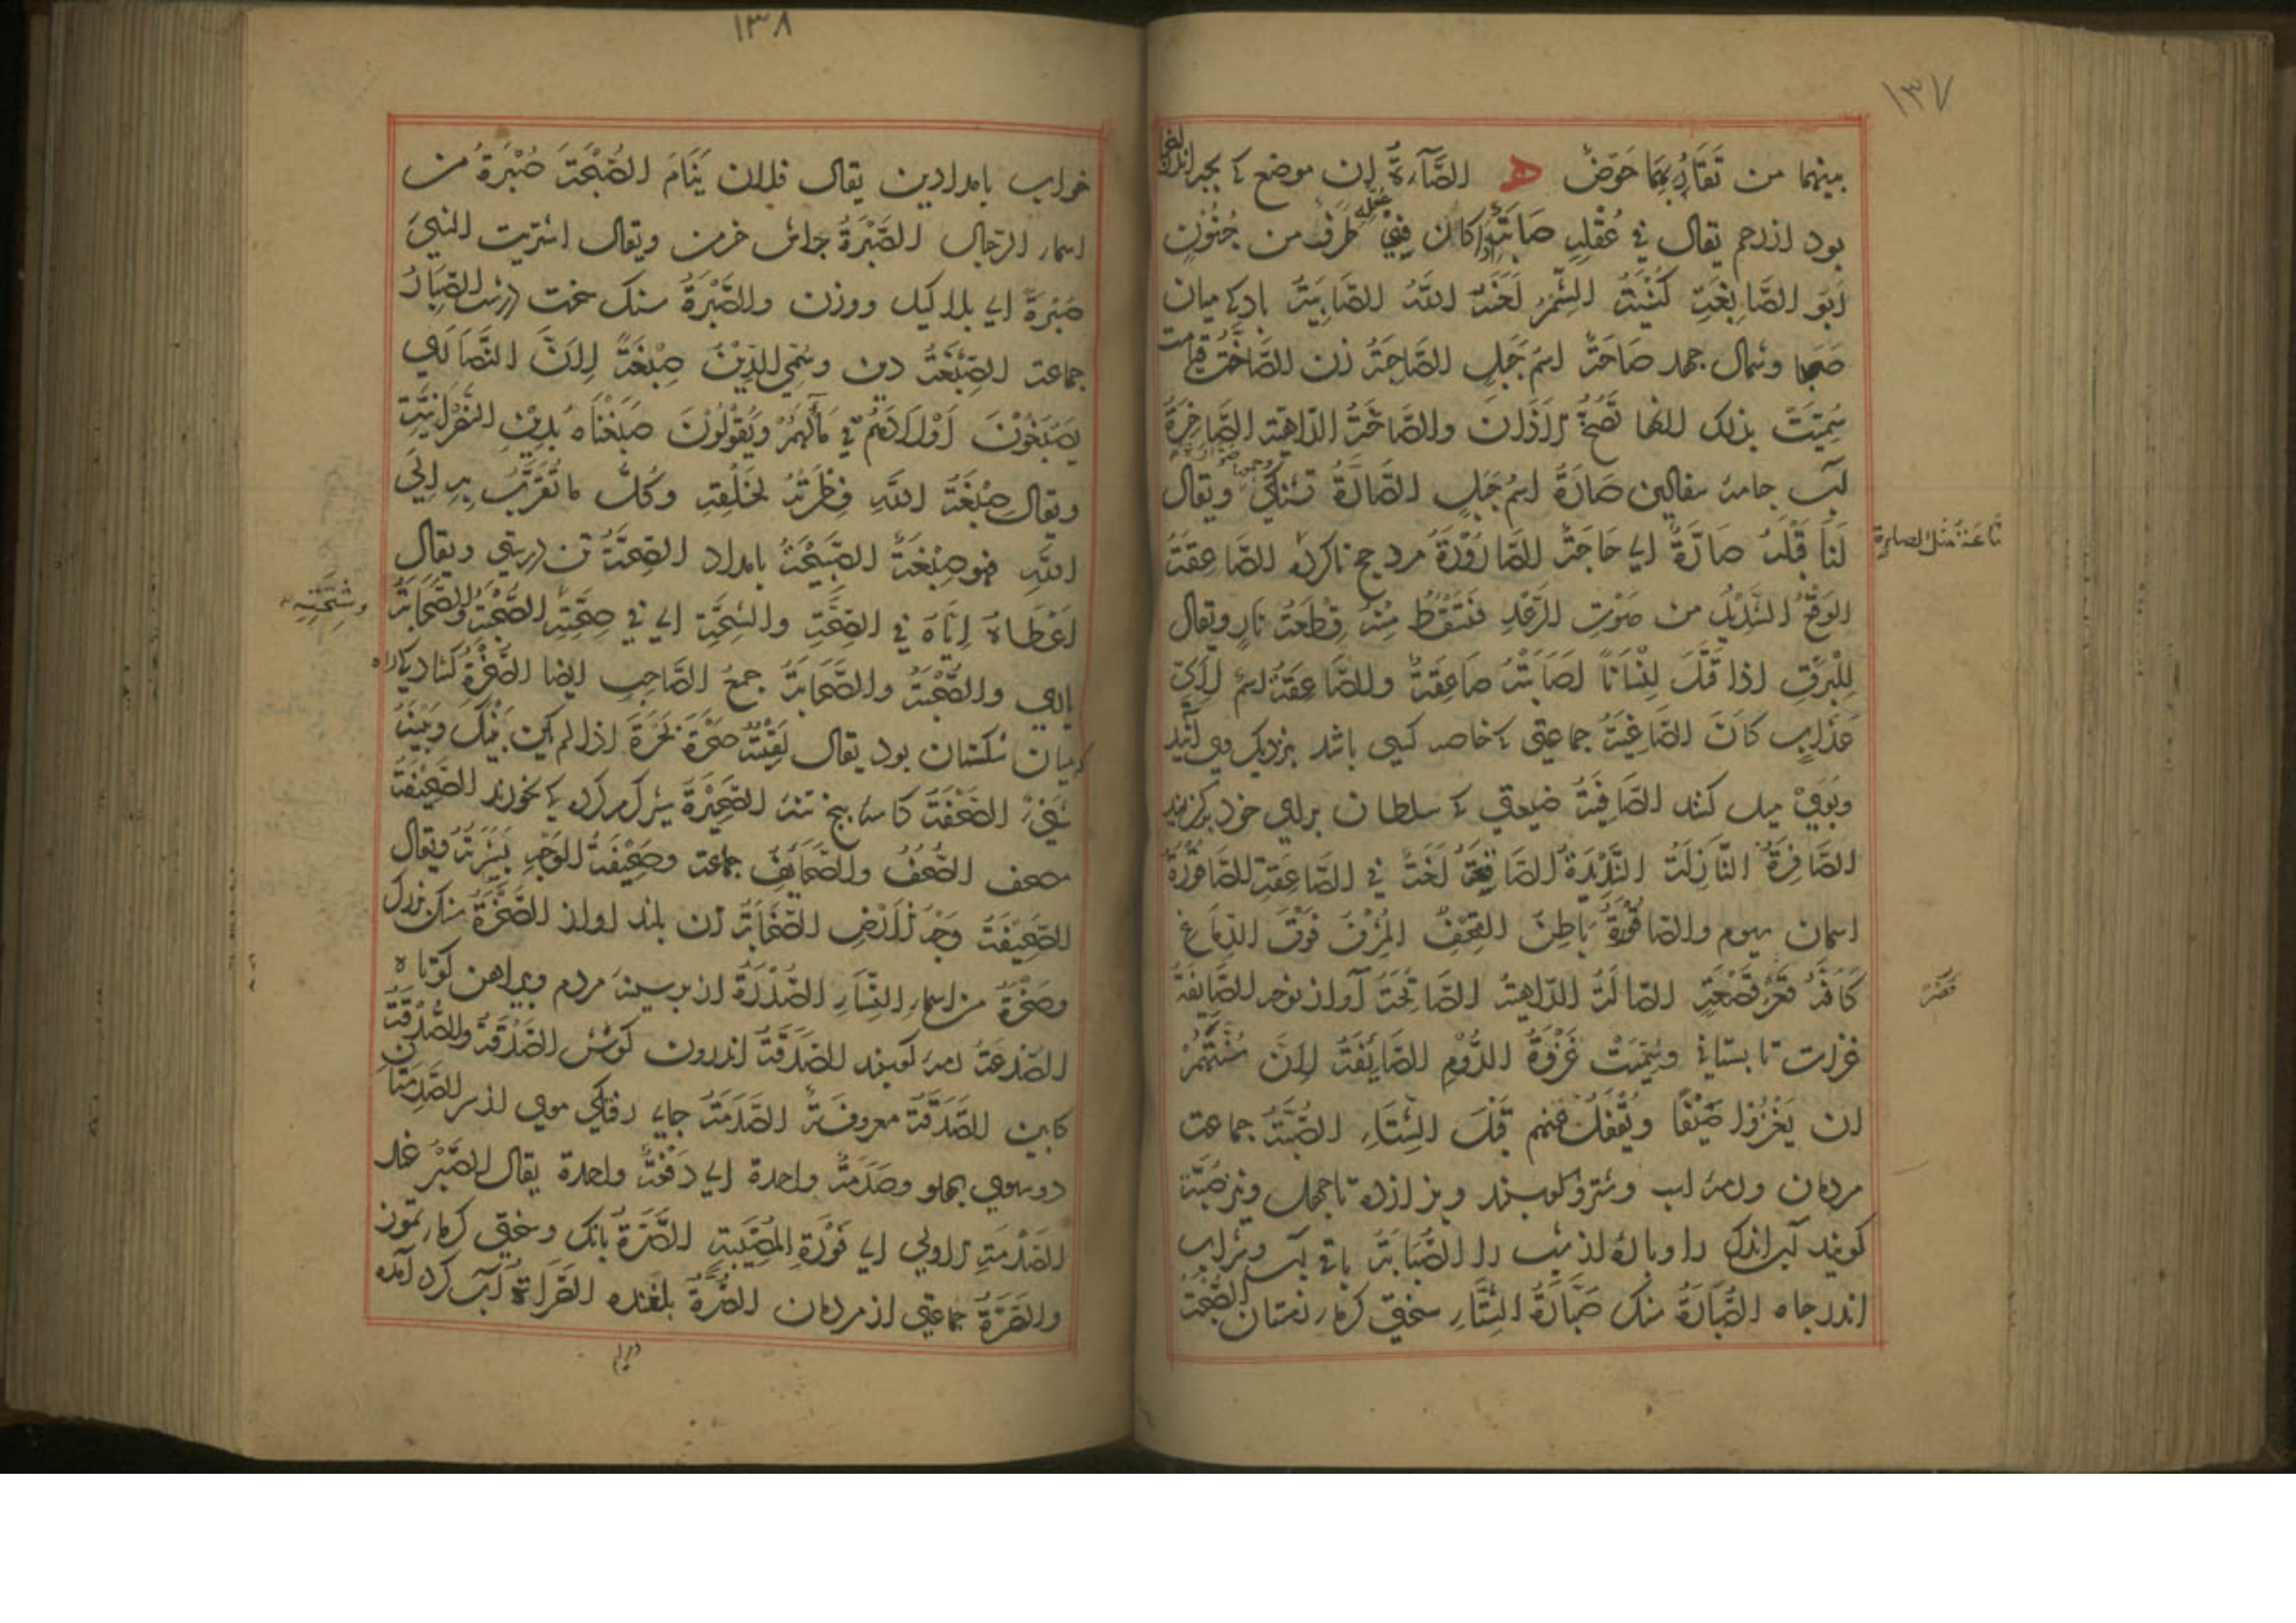 ١٣٧
بينهما من تقاربهما حوض ه الصَّارة ان موضع كه بجيز اندر
بود از رحم يقال في عقله صابة اذا كان فيه طرف من جنون
ابو الصابغة كنية الصابية باد كه ميان
صبا وشمال جهد صاحة اسم جبل الصاحة زن الصاخة قيامت
سميت بذلك لانها تصخ الاذان والصاخة الداهية الصاخرة
جامه سفالين صارة اسم جبل الصارة تشنكي ويقال
لنا قبله صارة اي حاجة الصارورة مرد حج ناكرده الصاعقة
الوقع الشديد من صوت الرعد فتسقط منه قطعة نار ويقال
للبرق اذا قتل انسانا اصابته صاعقة والصاعقة اسم لاي
عذاب كان الصاغية جماعتي كه خاصه كسي باشد بنزديك وي آيند
وبوي ميل كنند الصافية ضيعتي كه سلطان براي خود بركزيند
الصاقرة النازلة الشديدة الصاقعة لغة في الصاعقة الصاقورة
اسمان سيوم والصاقورة باطن القحف المشرف فوق الدماغ
كانه قعر قصعة الصالة الداهية آواز نوحه الصايفة
غزات تابستاني وسميت غزوة الروم الصايفة لان سنتهم
ان يغزوا صيفا ويقفل عنهم قبل الشتاء الصبة جماعت
مردمان ورمه اسب وشتر وكوسپند وبز از ده تا چهل ونيز صبة
كويند آب اندك را وپاره از شب را الصبابة باقي آب وشراب
اندر جاه الصبارة سنك صبارة الشتاء سختي سرما زمستان الصبحة
تاعة مثل الصابرة
قصر
١٣٨
خواب بامدادين يقال فلان ينام الصبحة صبرة من
اسماء الرجال الصبرة جاش خرمن ويقال اشتريت الشيء
صبرة اي بلا كيل ووزن والصبرة سنك سخت درشت الصبار
جماعة الصبغة دين وسمي الدين صبغة لان النصارى
يصبغون اولادهم في ماء لهم ويقولون صبغناه بدين النصرانية
ويقال صبغة الله فطرته لخلقه وكل ما تقرب به الى
الله فهو صبغة الصبيحة بامداد الصحة تن درستي ويقال
اعطاه اياه في الصحة والشحة اي في صحته الصحبة والصحابة
ياري والصحبة والصحابة جمع الصاحب ايضا الصحرة كشادكي راه
كه ميان بود يقال لقيته صحرة بحرة اذا لم يكن بينك وبينه
شيء الصحفة كاسه پنج تنه الصحيرة شير كرم كرده كه بخورند الصحيفة
مصحف الصحف والصحايف جماعة وصحيفة الوجه بشرته ويقال
الصحيفة وجه الارض الصخابة زن بلند اواز الصخرة سنك بزرك
وصخرة من اسماء النساء الصدرة از بر سينه مردم وپيراهن كوتاه
الصدعة رمه كوسپند الصدفة اندرون كوش الصدقة والصدقة
كابين الصدقة معروفة الصدمة جاي رفتكي موي از سر الصدمتان
دو سوي پهلو وصدمة واحدة اي دفعة واحدة يقال الصبر عند
الصدمة الاولى اي فورة المصيبة الصرة بانك وسختي كرما تموز
والصرة جماعتي از مردمان الصرة الصراة آب كرد آمده
وشحته